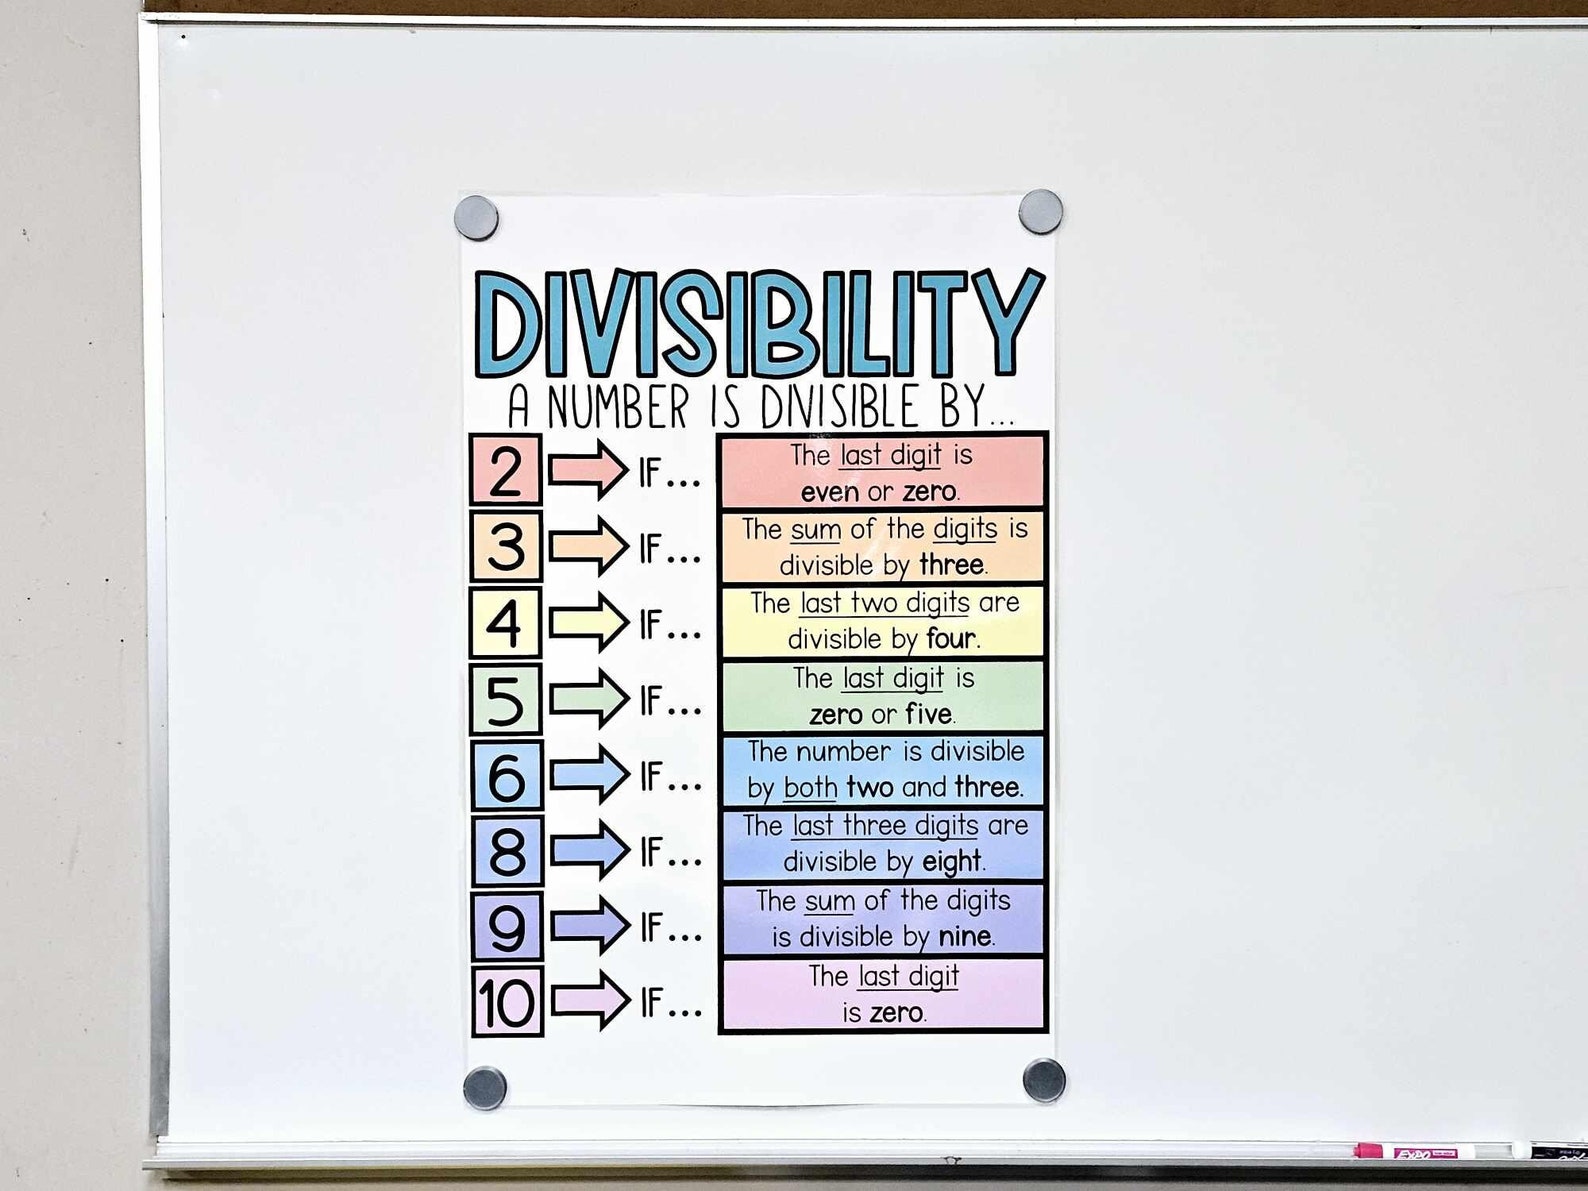 DIVISIBILITY
A NUMBER IS DIVISIBLE BY...
2 IF... The last digit is
even or zero.
3 IF... The sum of the digits is
divisible by three.
4 IF... The last two digits are
divisible by four.
5 IF... The last digit is
zero or five.
6 IF... The number is divisible
by both two and three.
8 IF... The last three digits are
divisible by eight.
9 IF... The sum of the digits
is divisible by nine.
10 IF... The last digit
is zero.
EXPO